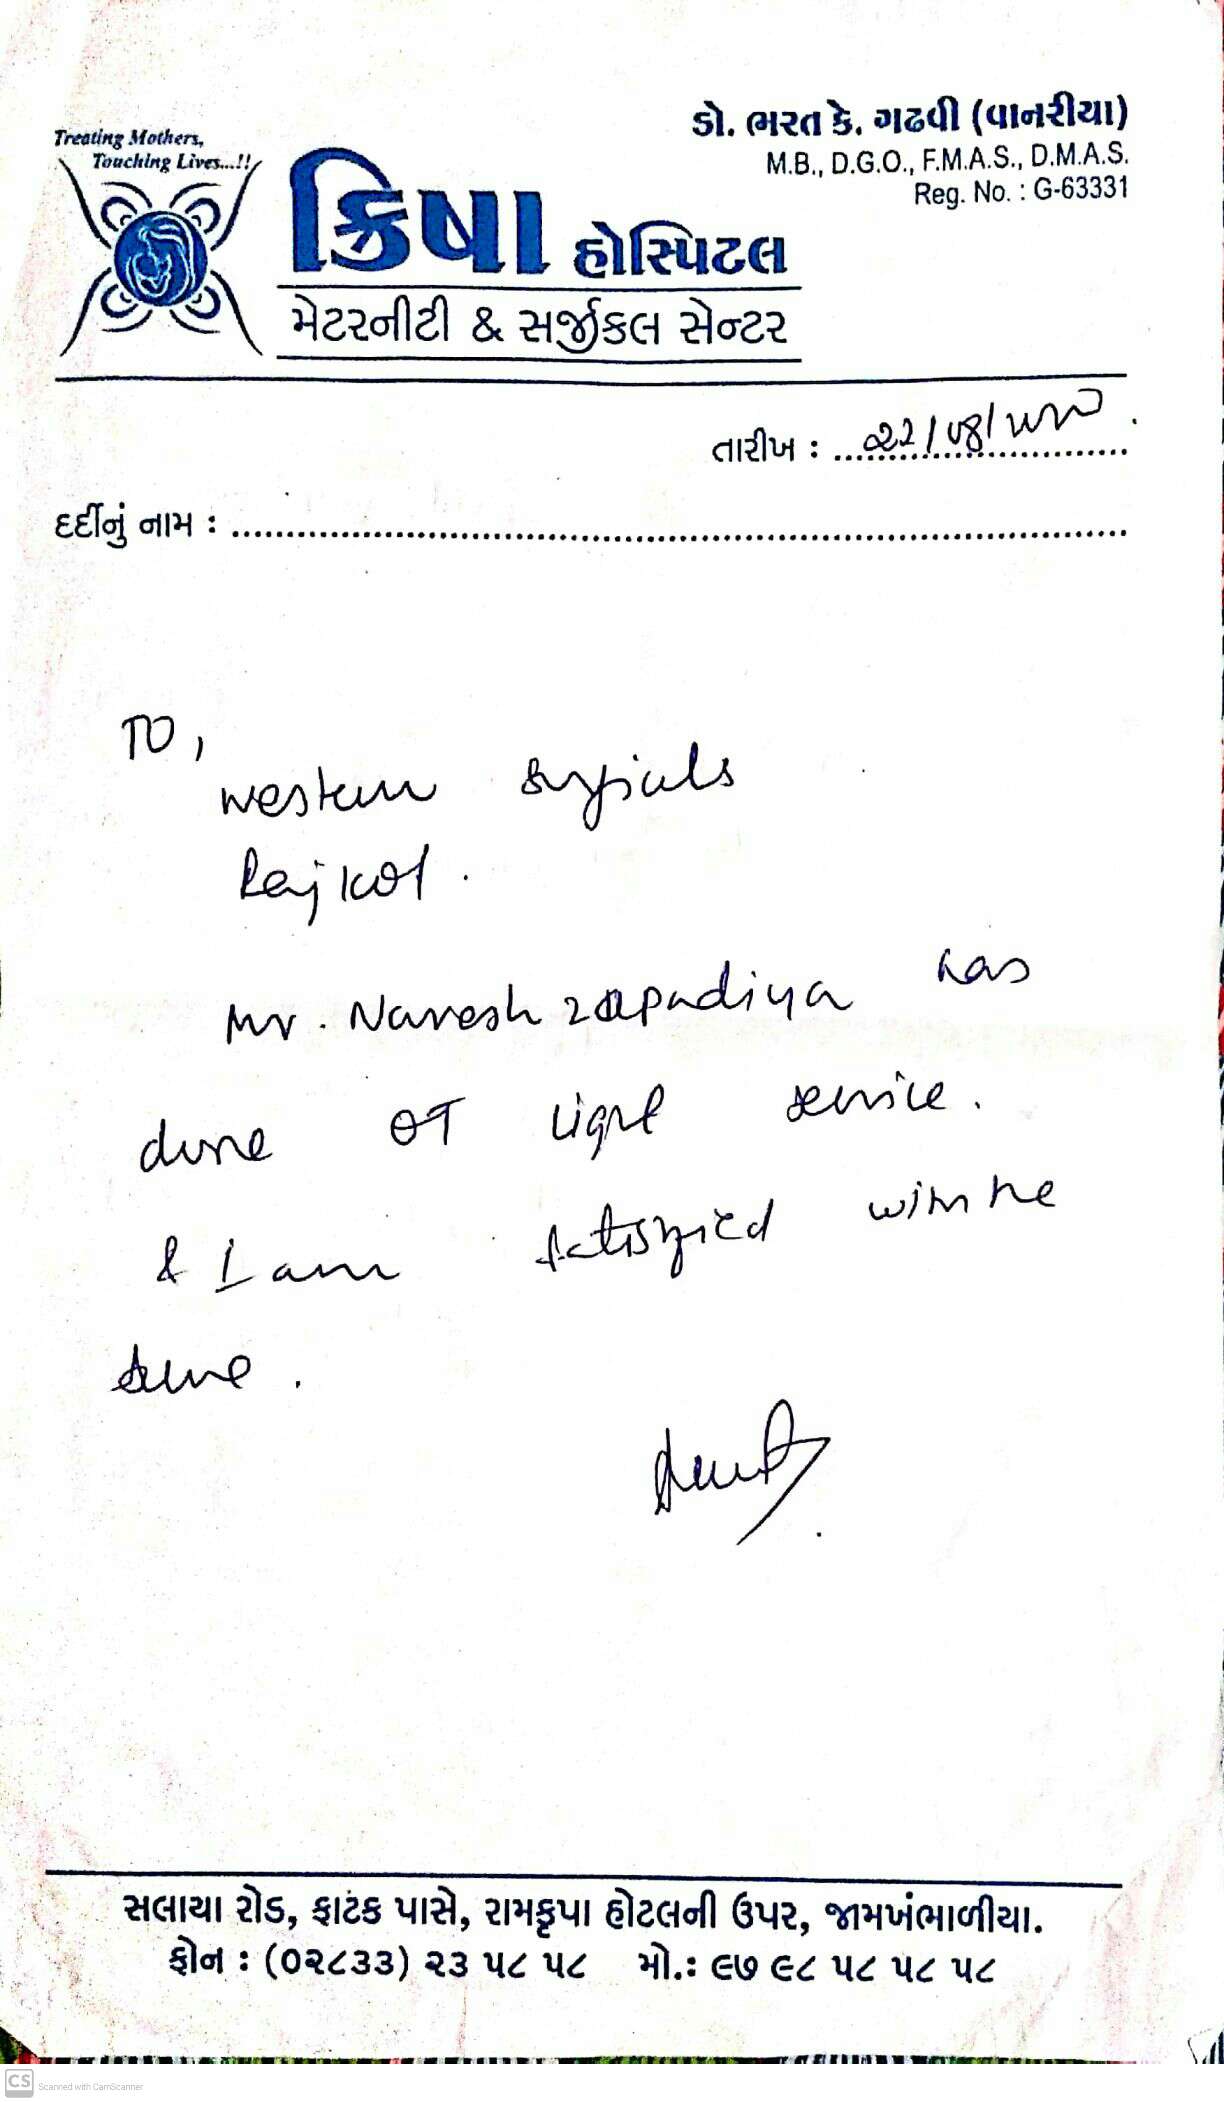 Treating Mothers,
Touching Lives...!!
ડો. ભરત કે. ગઢવી (વાનરીયા)
M.B., D.G.O., F.M.A.S., D.M.A.S.
Reg. No. : G-63331
ક્રિષા હોસ્પિટલ
મેટરનીટી & સર્જીકલ સેન્ટર
તારીખ : 22/08/
દર્દીનું નામ :
TO,
Western Surgicals
Rajkot.
Mr. Naresh zapadiya has
done OT Light service.
& I am satisfied with the
same.
સલાયા રોડ, ફાટક પાસે, રામકૃપા હોટલની ઉપર, જામખંભાળીયા.
ફોન : (૦૨૮૩૩) ૨૩ ૫૮ ૫૮ મો.: ૯૭ ૯૮ ૫૮ ૫૮ ૫૮
CS Scanned with CamScanner